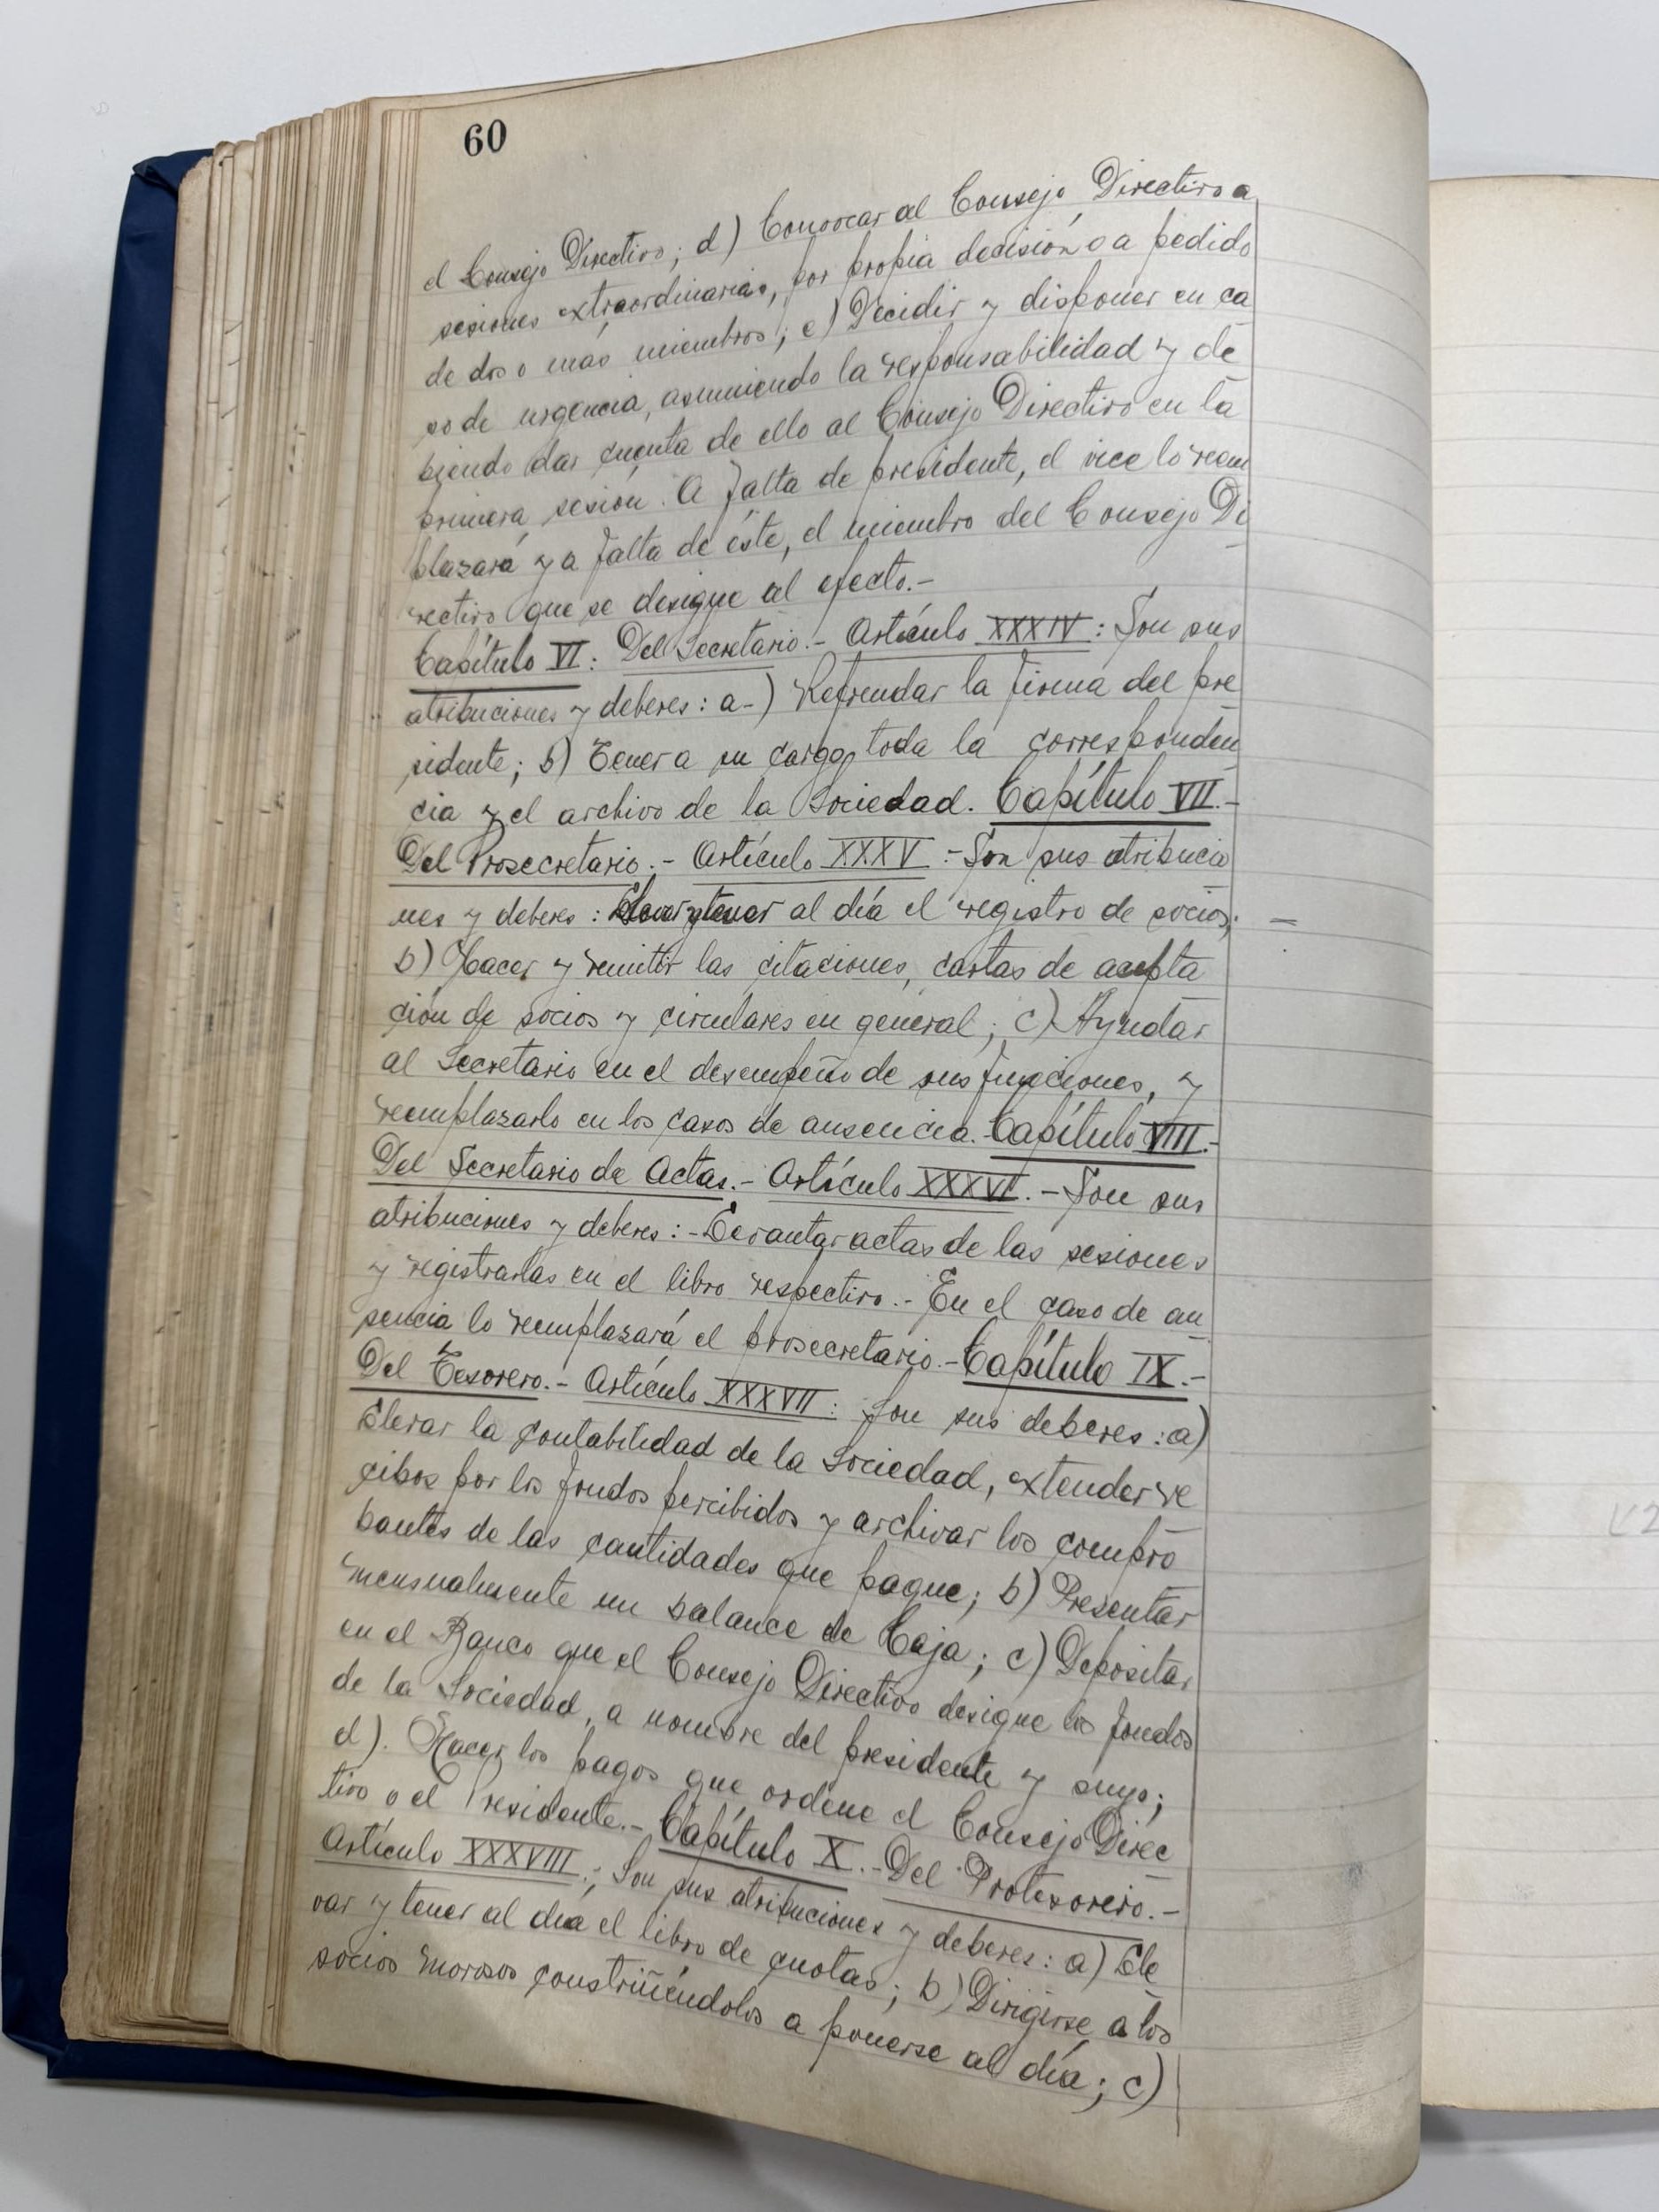 60
el Consejo Directivo; d) Convocar al Consejo Directivo a
sesiones extraordinarias, por propia decisión o a pedido
de dos o más miembros; e) Decidir y disponer en ca
so de urgencia, asumiendo la responsabilidad y de
biendo dar cuenta de ello al Consejo Directivo en la
primera sesión. A falta de presidente, el vice lo reem
plazará y a falta de éste, el miembro del Consejo Di
rectivo que se designe al efecto.-
Capítulo VI: Del Secretario.- Artículo XXXIV: Son sus
atribuciones y deberes: a-) Refrendar la firma del pre
sidente; b) Tener a su cargo toda la corresponden
cia y el archivo de la Sociedad. Capítulo VII.-
Del Prosecretario.- Artículo XXXV:- Son sus atribucio
nes y deberes: Llevar y tener al día el registro de socios;
b) Hacer y remitir las citaciones, cartas de acepta
ción de socios y circulares en general; c) Ayudar
al Secretario en el desempeño de sus funciones, y
reemplazarlo en los casos de ausencia. Capítulo VIII.-
Del Secretario de Actas.- Artículo XXXVI.- Son sus
atribuciones y deberes:- Levantar actas de las sesiones
y registrarlas en el libro respectivo.- En el caso de au
sencia lo reemplazará el prosecretario.- Capítulo IX.-
Del Tesorero.- Artículo XXXVII: Son sus deberes: a)
Llevar la contabilidad de la Sociedad, extender re
cibos por los fondos percibidos y archivar los compro
bantes de las cantidades que pague; b) Presentar
mensualmente un balance de Caja; c) Depositar
en el Banco que el Consejo Directivo designe los fondos
de la Sociedad, a nombre del presidente y suyo;
d). Hacer los pagos que ordene el Consejo Direc
tivo o el Presidente.- Capítulo X.- Del Protesorero.-
Artículo XXXVIII.; Son sus atribuciones y deberes: a) Lle
var y tener al día el libro de cuotas; b) Dirigirse a los
socios morosos constriñéndolos a ponerse al día; c)